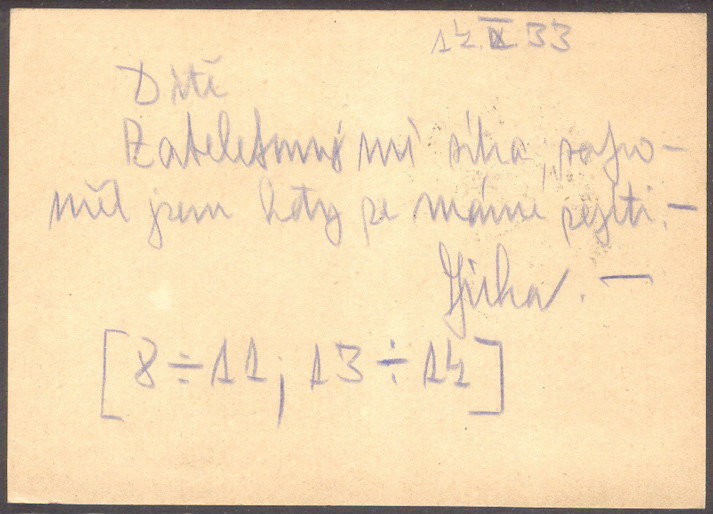 14. IX 33
Dítě
Zatelefonuj mi zítra, zapo-
mněl jsem kdy se máme sejíti. —
Jirka. —
[8÷11, 13÷14]